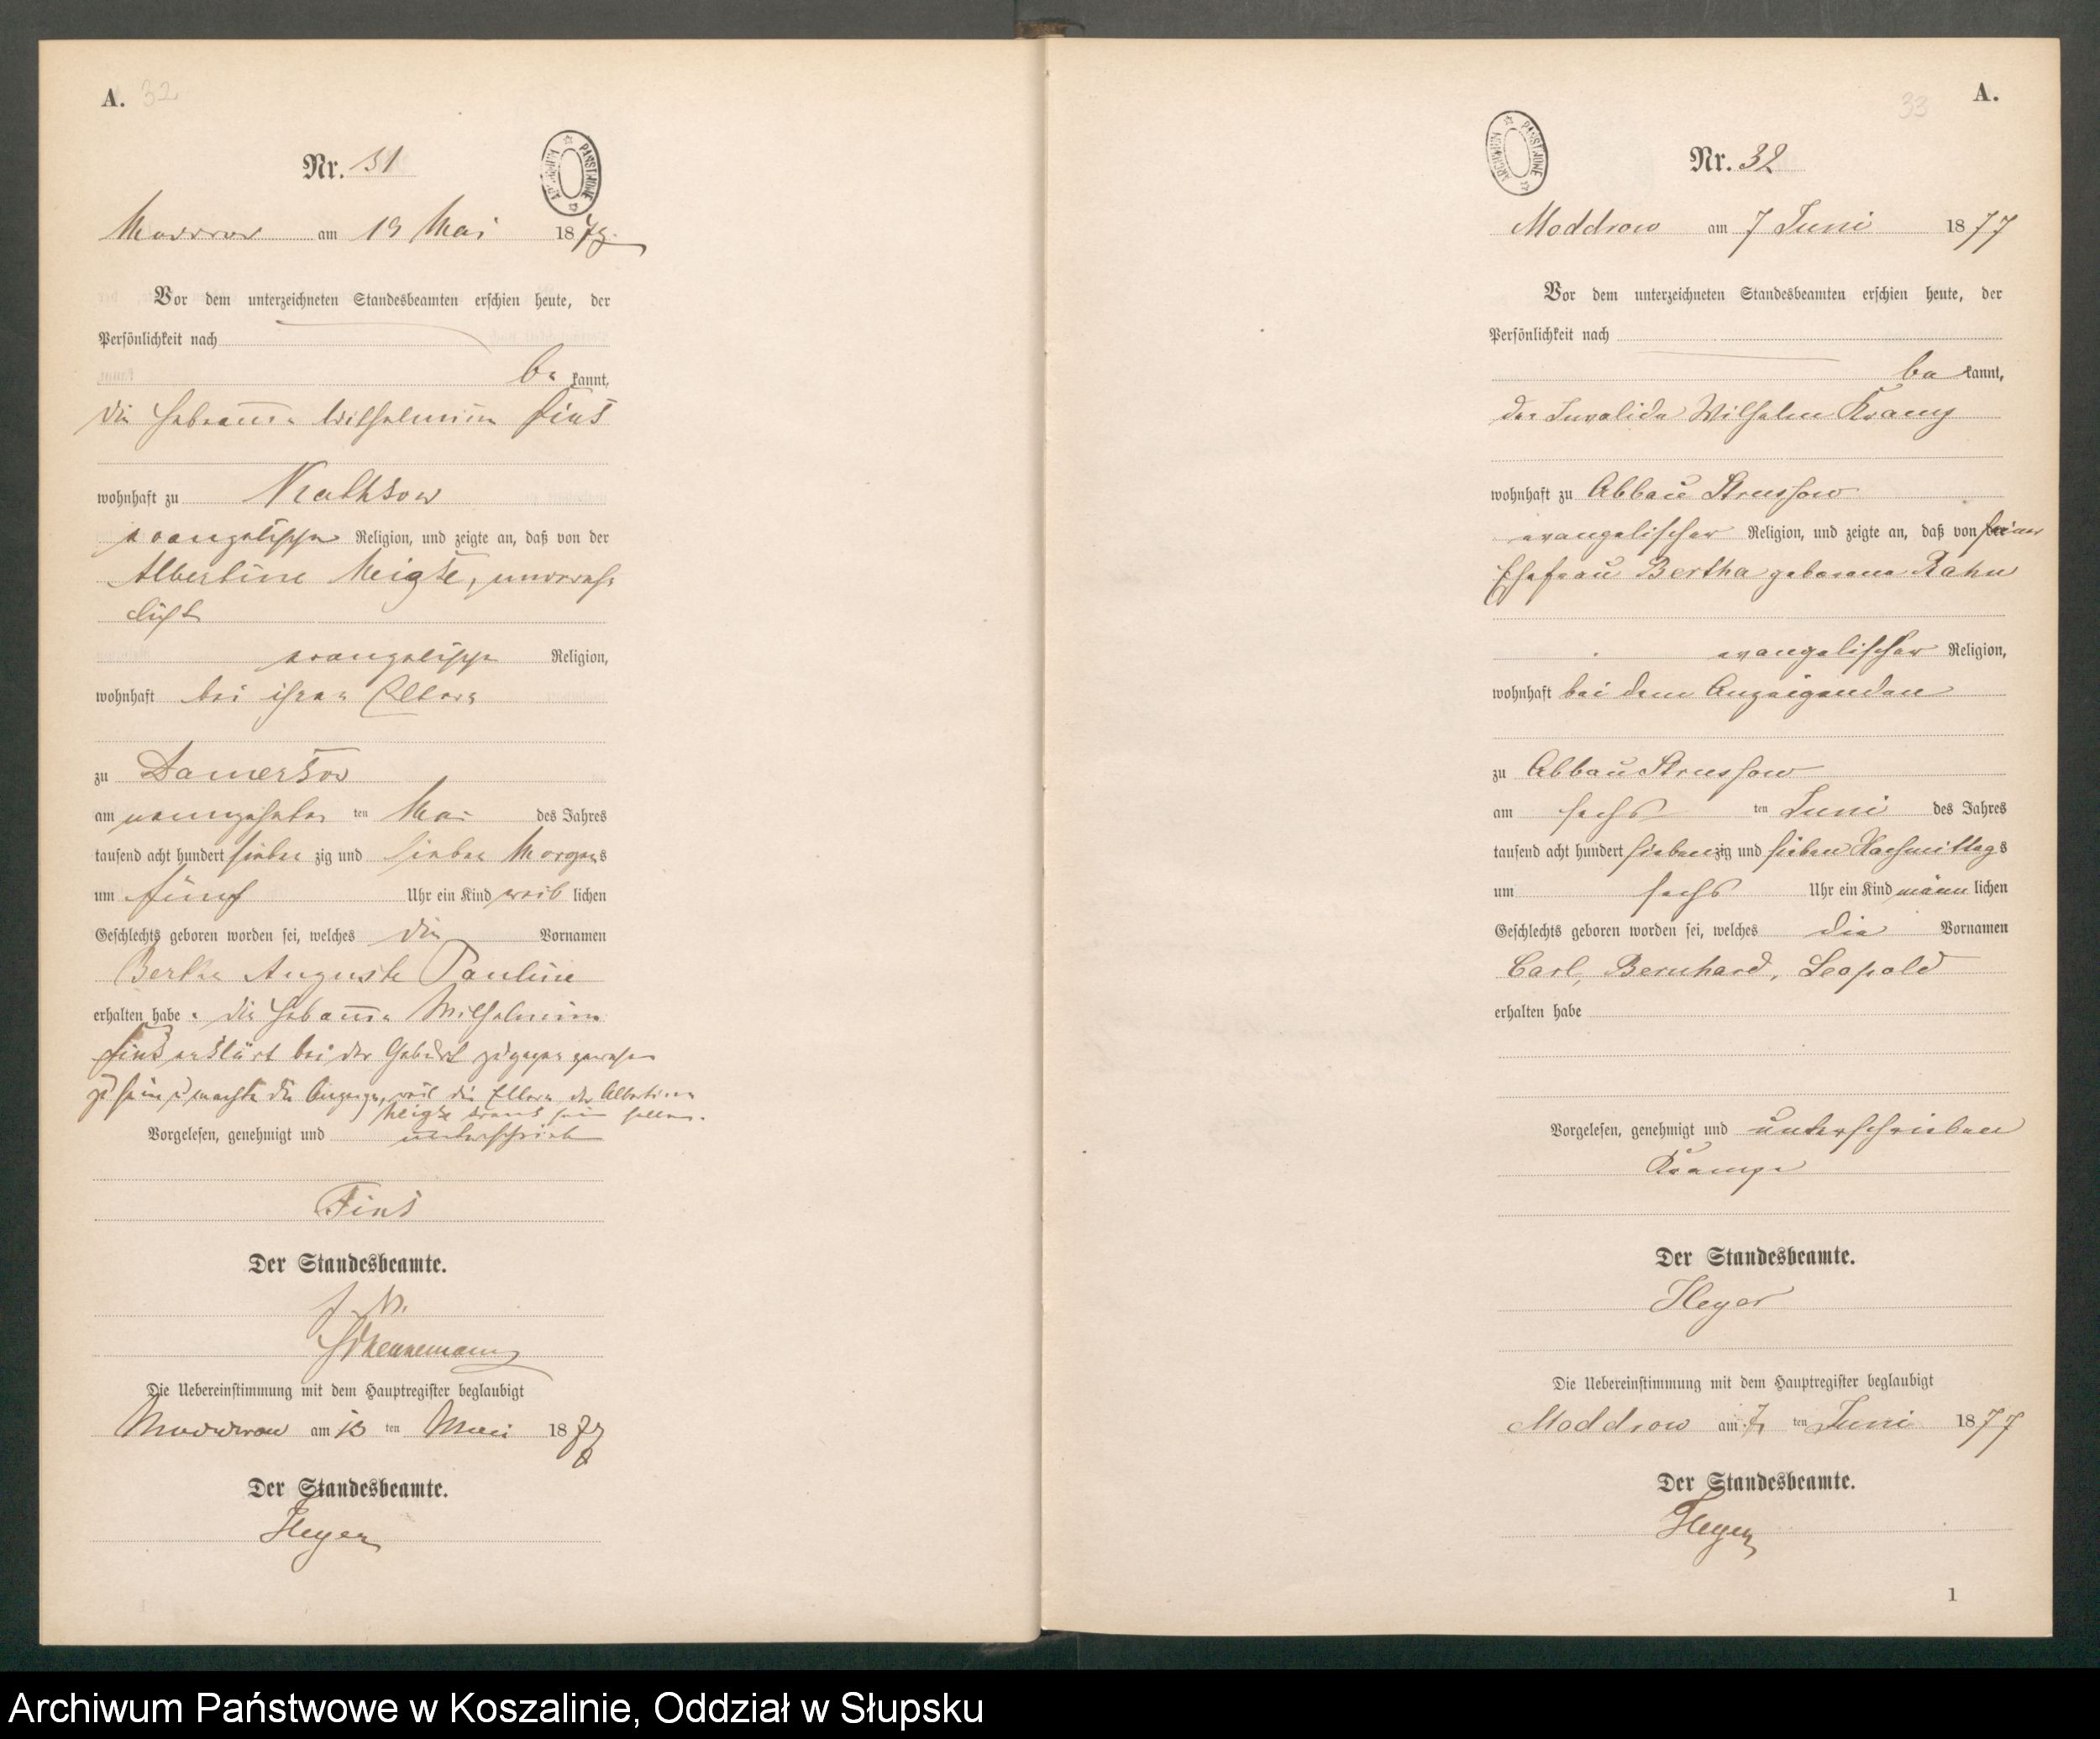 A. 32
Nr. 31
ARCHIWUM PAŃSTWOWE
Moddrow am 19 Mai 1877
Vor dem unterzeichneten Standesbeamten erschien heute, der
Persönlichkeit nach
be kannt,
die Hebamme Wilhelmine
wohnhaft zu
evangelischer Religion, und zeigte an, daß von der
Albertine unvereh-
licht
evangelischer Religion,
wohnhaft bei ihren Eltern
zu Damerkow
am neunzehnten ten Mai des Jahres
tausend acht hundert sieben zig und sieben Morgens
um fünf Uhr ein Kind weib lichen
Geschlechts geboren worden sei, welches die Vornamen
Bertha Auguste Pauline
erhalten habe. die Hebamme Wilhelmine
erklärt bei der Geburt zugegen gewesen
zu sein u machte die Anzeige, weil die Eltern der Albertine
krank sein sollen.
Vorgelesen, genehmigt und unterschrieben
Der Standesbeamte.
Die Uebereinstimmung mit dem Hauptregister beglaubigt
Moddrow am ten Mai 1877
Der Standesbeamte.
Heyer
33 A.
Nr. 32
ARCHIWUM PAŃSTWOWE
Moddrow am 7 Juni 1877
Vor dem unterzeichneten Standesbeamten erschien heute, der
Persönlichkeit nach
be kannt,
der Invalide Wilhelm
wohnhaft zu Abbau Strussow
evangelischer Religion, und zeigte an, daß von seiner
Ehefrau Bertha geborene Rahn
evangelischer Religion,
wohnhaft bei dem Anzeigenden
zu Abbau Strussow
am sechs ten Juni des Jahres
tausend acht hundert siebenzig und sieben Nachmittags
um sechs Uhr ein Kind männ lichen
Geschlechts geboren worden sei, welches die Vornamen
Carl, Bernhard, Leopold
erhalten habe
Vorgelesen, genehmigt und unterschrieben
Krampe
Der Standesbeamte.
Heyer
Die Uebereinstimmung mit dem Hauptregister beglaubigt
Moddrow am 7 ten Juni 1877
Der Standesbeamte.
Heyer
1
Archiwum Państwowe w Koszalinie, Oddział w Słupsku